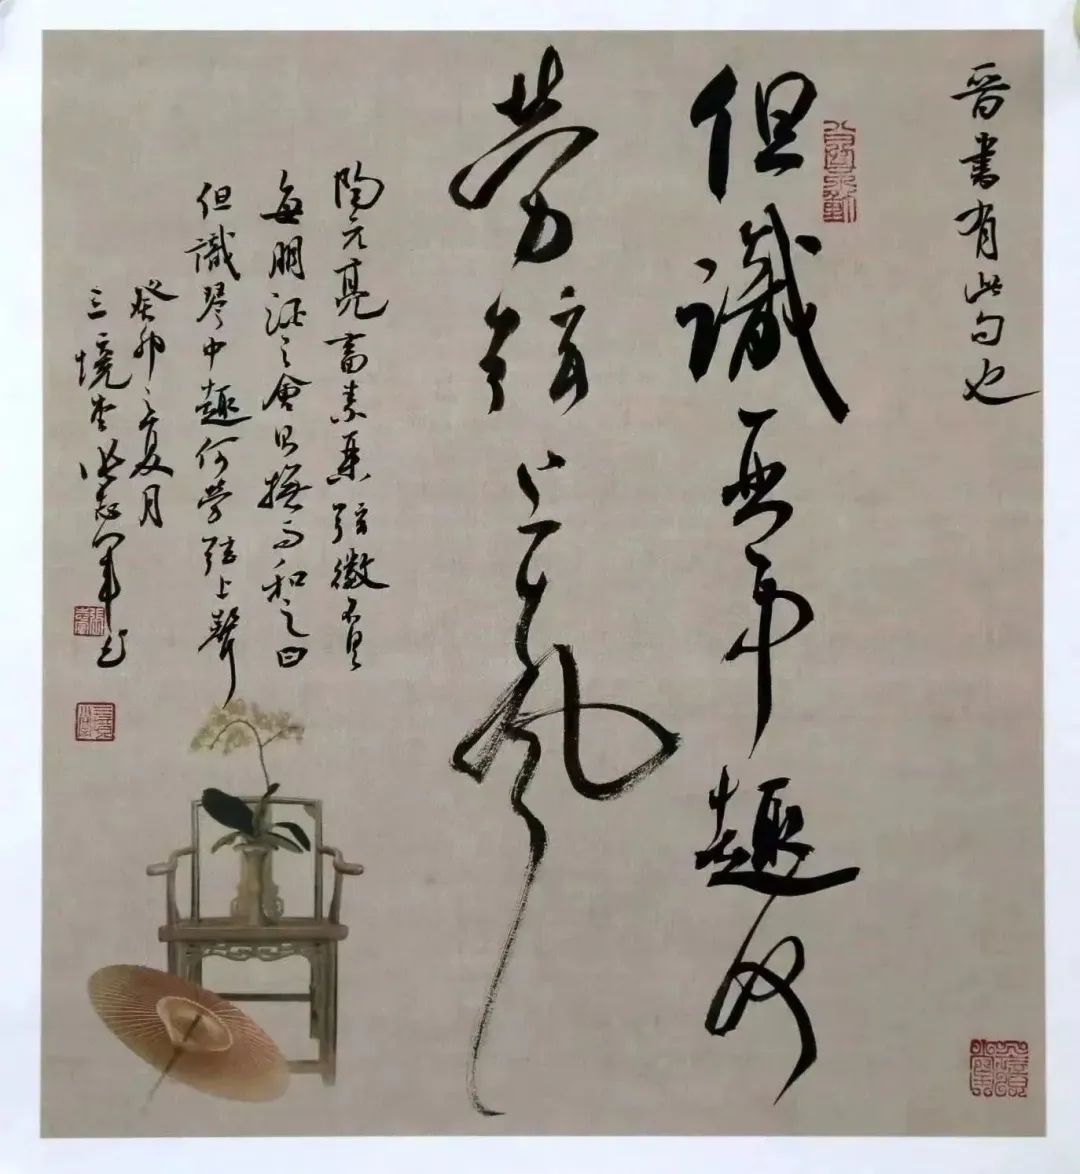 晋書有此句也
但識琴中趣何
劳弦上聲
陶元亮畜素琴弦徽不具
每朋酒之會則撫而和之曰
但識琴中趣何劳弦上聲
癸卯之夏月
三境堂